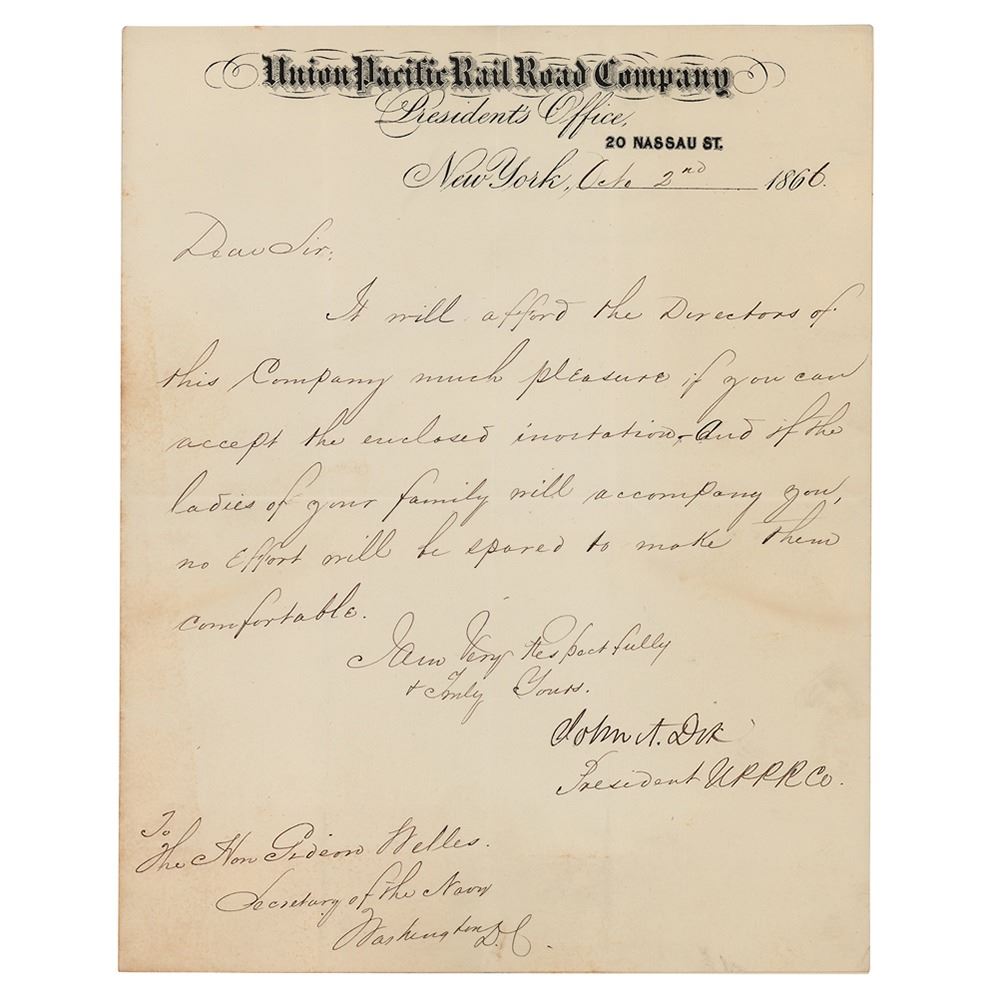 Union Pacific Rail Road Company
President's Office,
20 NASSAU ST.
New York, Oct. 2nd 1866.
Dear Sir,
It will afford the Directors of
this Company much pleasure if you can
accept the enclosed invitation - And if the
ladies of your family will accompany you,
no Effort will be spared to make them
comfortable.
I am Very Respectfully
& Truly Yours.
John A. Dix
President U.P.R.R. Co.
To
The Hon Gideon Welles.
Secretary of the Navy
Washington D.C.